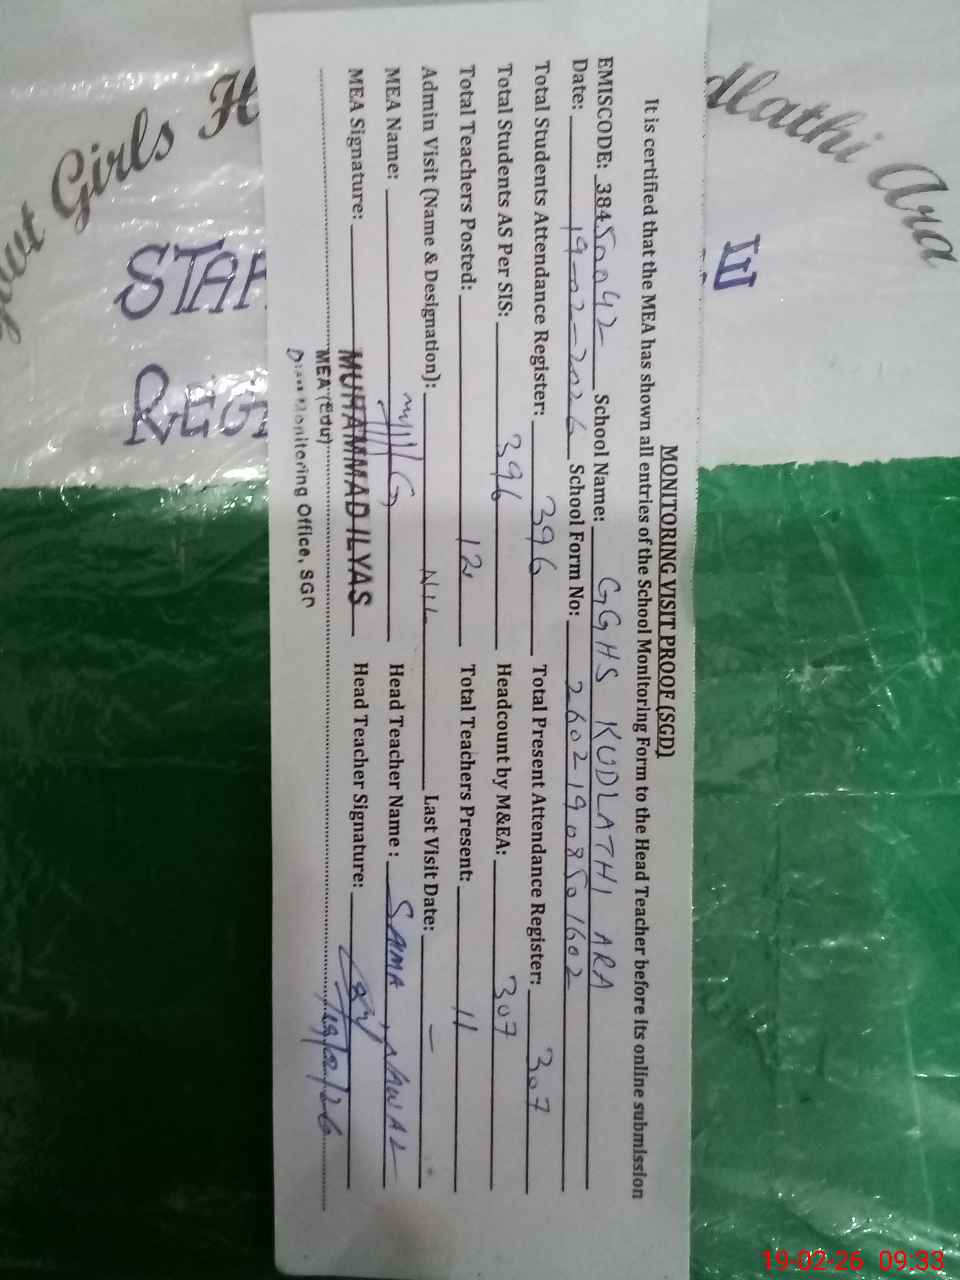 MONITORING VISIT PROOF (SGD)
It is certified that the MEA has shown all entries of the School Monitoring Form to the Head Teacher before its online submission
EMISCODE: 38450042 School Name: GGHS KUDLATHI ARA
Date: 19-02-2026 School Form No: 26021908501602
Total Students Attendance Register: 396 Total Present Attendance Register: 307
Total Students AS Per SIS: 396 Headcount by M&EA: 307
Total Teachers Posted: 12 Total Teachers Present: 11
Admin Visit (Name & Designation): NIL Last Visit Date: —
MEA Name: Head Teacher Name : SAMA NAWAL
MEA Signature: MUHAMMAD ILYAS Head Teacher Signature:
MEA (Edu) 19/02/26
Monitoring Office, SGD
Govt Girls H
dlathi Ara
STAF
REG
19-02-26 09:33